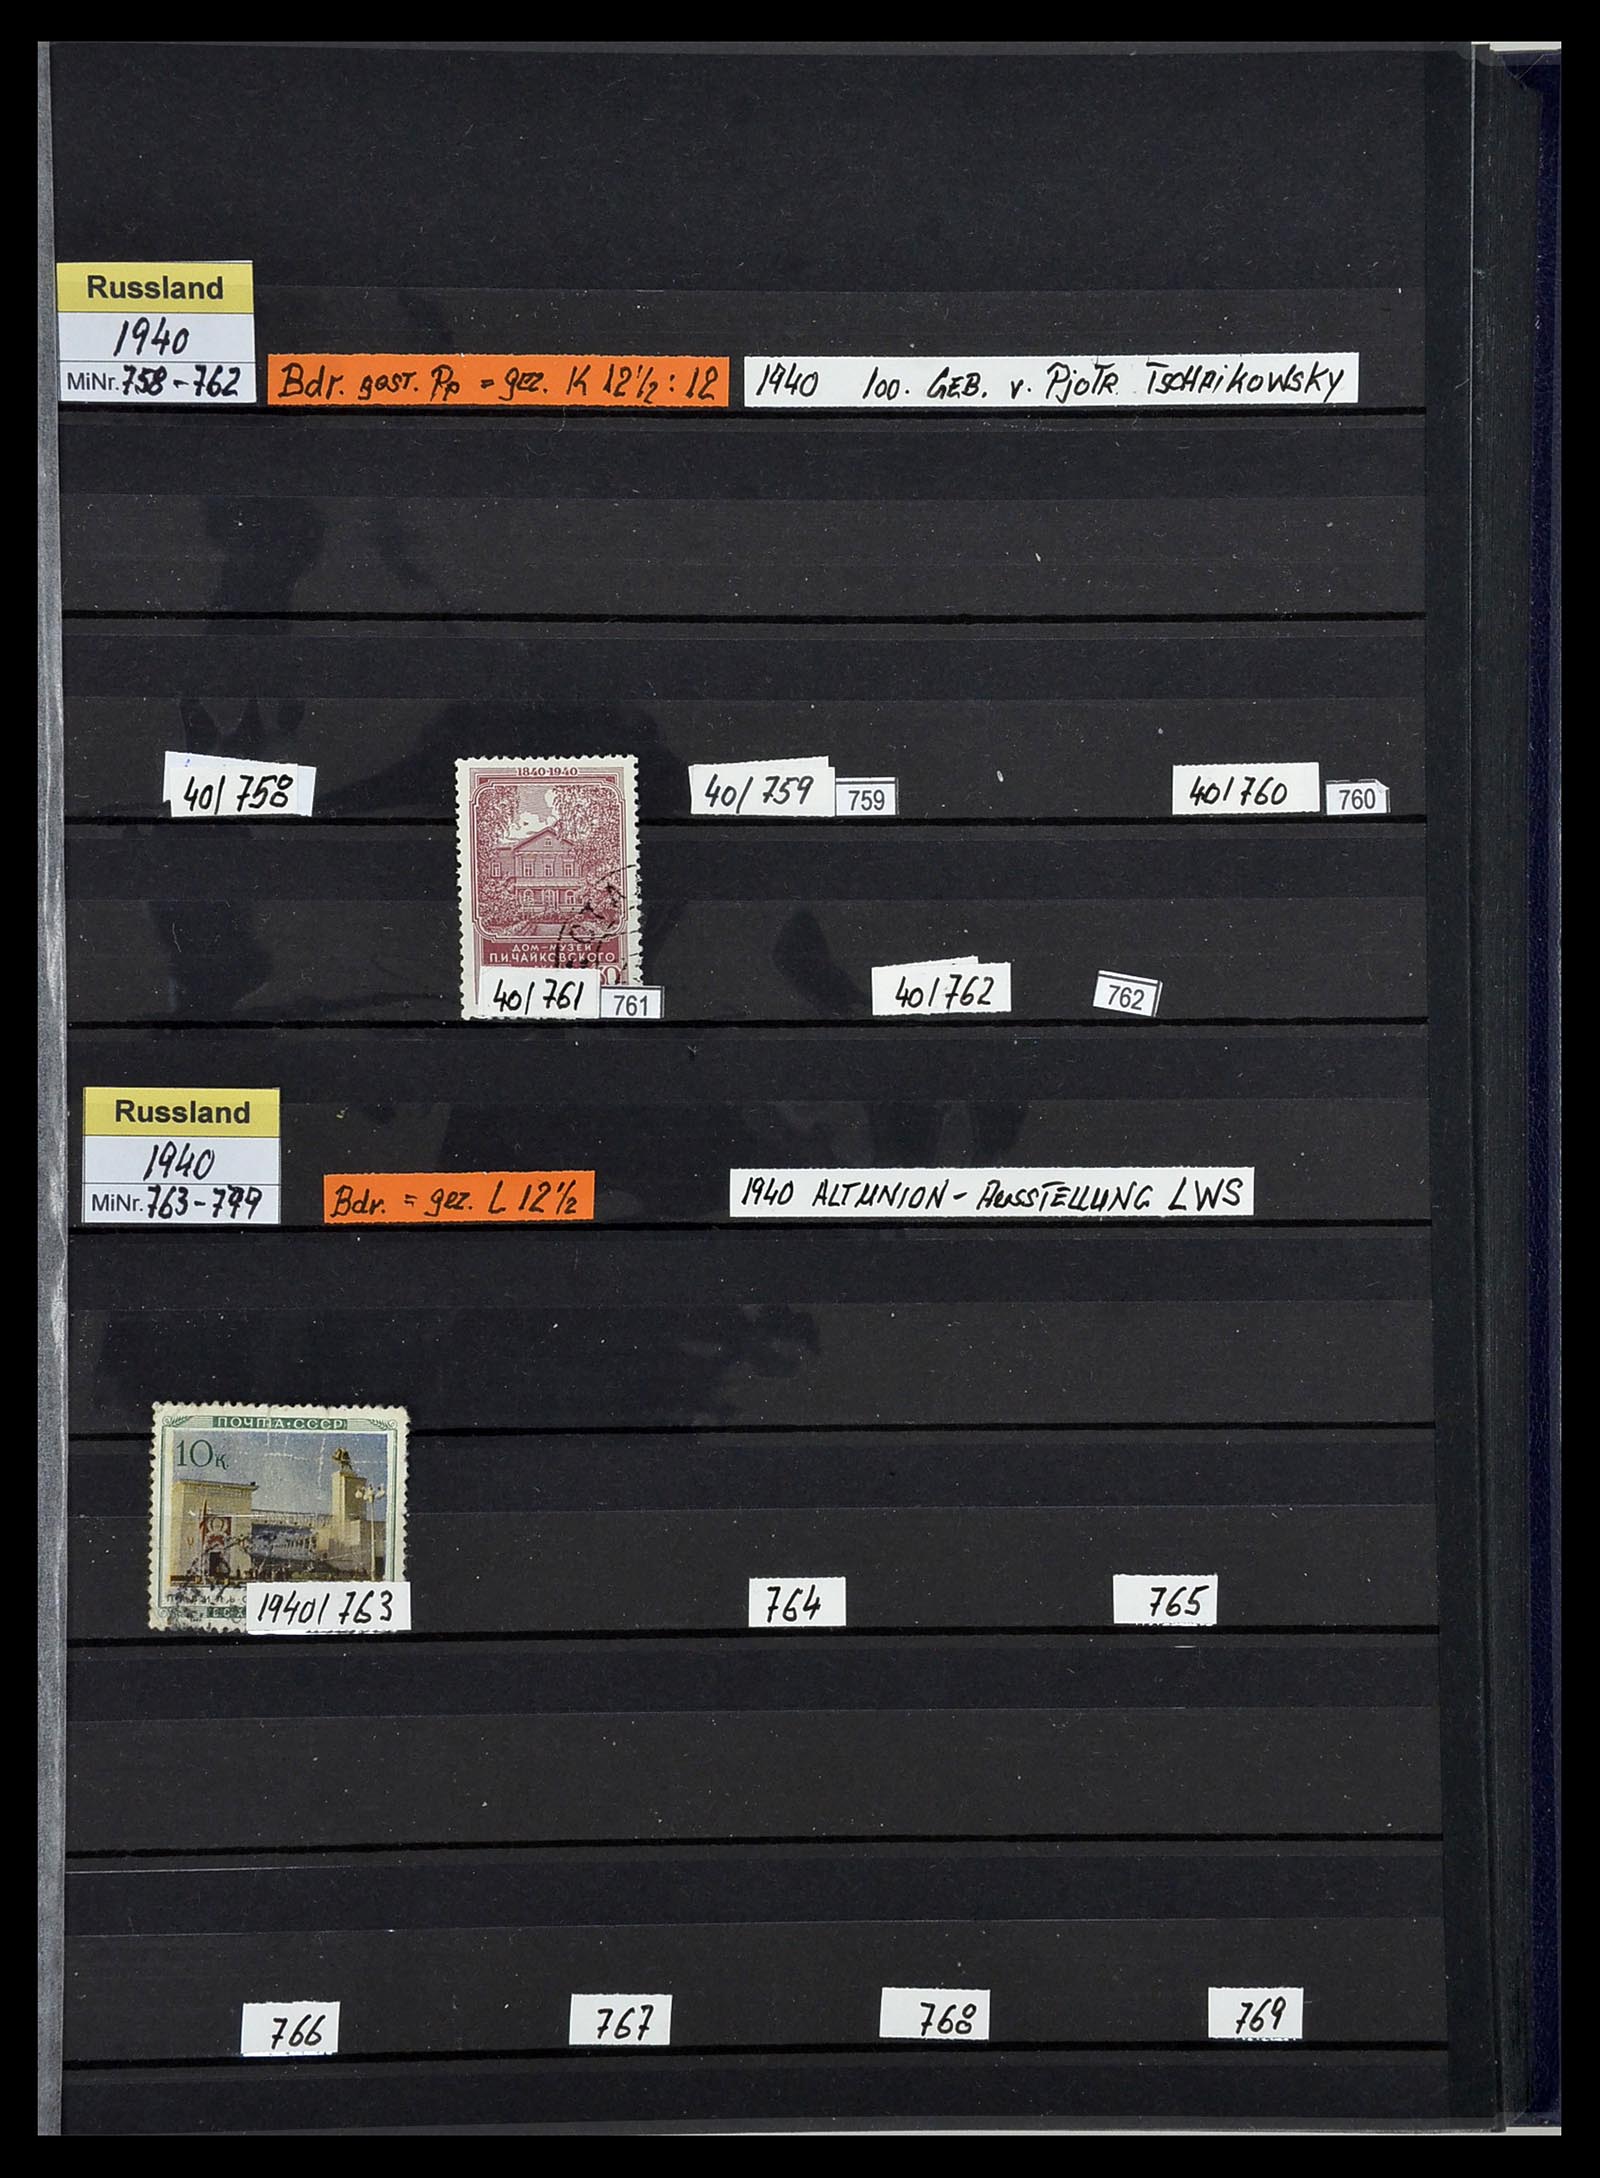 Russland
1940
MiNr. 758-762
Bdr. gest. Pp = gez. K 12½ : 12
1940 100. GEB. v. PJOTR TSCHAIKOWSKY
40/758
1840-1940
ДОМ-МУЗЕЙ
П.И.ЧАЙКОВСКОГО
40/759
759
40/760
760
40/761
761
40/762
762
Russland
1940
MiNr. 763-779
Bdr. = gez. L 12½
1940 ALTUNION - AUSSTELLUNG LWS
ПОЧТА·СССР
10 К.
1940/763
764
765
766
767
768
769